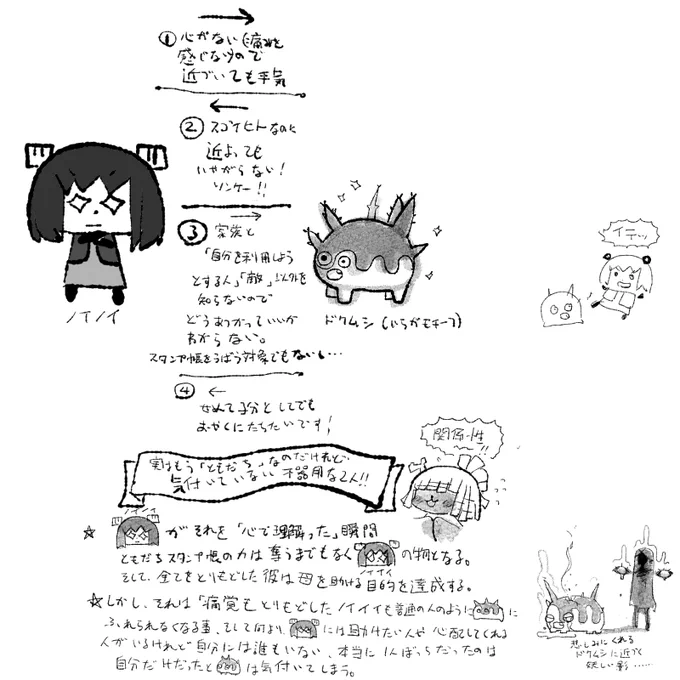 ① 心がない(痛みを
感じない)ので
近づいても平気
② スゴイヒトなのに
近よっても
いやがらない!
ソンケー!!
③ 家族と
「自分を利用しよう
とする人」「敵」以外を
知らないので
どうあつかっていいか
わからない。
スタンプ帳をうばう対象でもないし…
④
せめて子分としてでも
おやくにたちたいです!
ノイノイ
ドクムシ(いちがモチーフ)
イテッ
関係性!!
実はもう「ともだち」なのだけれど、
気付いていない不器用な2人!!
☆ ノイノイ がそれを「心で理解った」瞬間
ともだちスタンプ帳の力は奪うまでもなく ノイノイ の物となる。
そして、全てをとりもどした彼は母を助ける目的を達成する。
☆しかし、それは「痛覚もとりもどしたノイノイも普通の人のように に
ふれられなくなる事、そして何より、 には助けたい人や心配してくれる
人がいるけれど自分には誰もいない、本当に1人ぼっちだったのは
自分だけだったと は気付いてしまう。
悲しみにくれる
ドクムシに近づく
妖しい影……